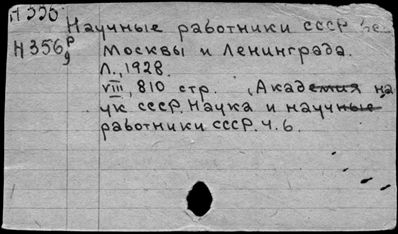 Научные работники СССР бе
Н356 р
9
Москвы и Ленинграда.
Л., 1928.
VIII, 810 стр. (Академия на
ук СССР. Наука и научные
работники СССР. ч. 6.